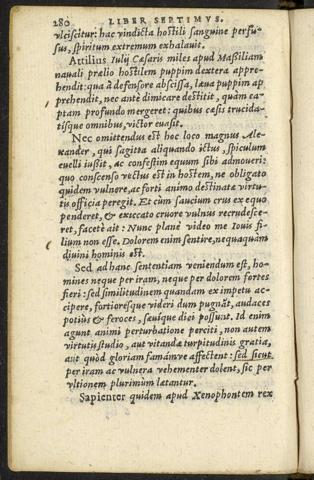 280 LIBER SEPTIMVS.
vlciscitur: hac vindicta hostili sanguine perfu-
sus, spiritum extremum exhalauit.
Attilius Iulij Cæsaris miles apud Maßiliam
nauali prælio hostilem puppim dextera appre-
hendit: qua à defensore abscissa, læua puppim ap
prehendit, nec antè dimicare destitit, quàm ca-
ptam profundo mergeret: quibus cæsis trucida-
tisque omnibus, victor euasit.
Nec omittendus est hoc loco magnus Ale-
xander, qui sagitta aliquando ictus, spiculum
euelli iußit, ac confestim equum sibi admoueri:
quo conscenso vectus est in hostem, ne obligato
quidem vulnere, ac forti animo destinatæ virtu-
tis officia peregit. Et cùm saucium crus ex equo
penderet, & exiccato cruore vulnus recrudesce-
ret, facetè ait: Nunc planè video me Iouis fi-
lium non esse. Dolorem enim sentire, nequaquam
diuini hominis est.
Sed ad hanc sententiam veniendum est, ho-
mines neque per iram, neque per dolorem fortes
fieri: sed similitudinem quandam ex impetu ac-
cipere, fortioresque videri dum pugnāt, audaces
potiùs & feroces, sæuique dici possunt. Id enim
agunt animi perturbatione perciti, non autem
virtutis studio, aut vitandæ turpitudinis gratia,
aut quòd gloriam famámve affectent: sed sicut
per iram ac vulnera vehementer dolent, sic per
vltionem plurimùm lætantur.
Sapienter quidem apud Xenophontem rex